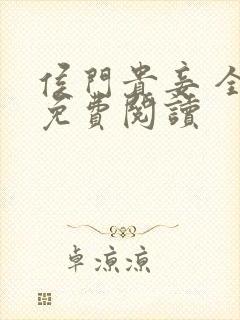 侯門貴妾 全
免費閱讀
卓涼涼